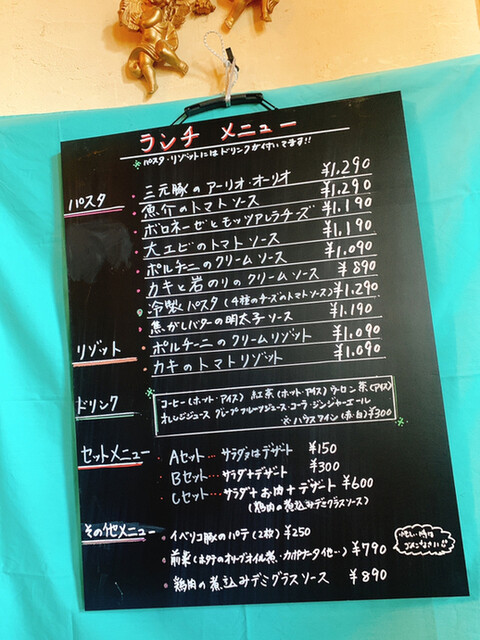 ランチ メニュー
パスタ・リゾットにはドリンクが付いてます!!
パスタ
三元豚のアーリオ・オーリオ ¥1,290
魚介のトマトソース ¥1,290
ボロネーゼとモッツアレラチーズ ¥1,190
大エビのトマトソース ¥1,190
ポルチーニのクリームソース ¥1,090
カキと岩のりのクリームソース ¥890
冷製パスタ(4種のチーズのトマトソース) ¥1,290
焦がしバターの明太子ソース ¥1,190
リゾット
ポルチーニのクリームリゾット ¥1,090
カキのトマトリゾット ¥1,090
ドリンク
コーヒー(ホット・アイス) 紅茶(ホット・アイス) ウーロン茶(アイス)
オレンジジュース グレープフルーツジュース・コーラ・ジンジャーエール
※ハウスワイン(赤・白)¥300
セットメニュー
Aセット… サラダ又はデザート ¥150
Bセット… サラダ+デザート ¥300
Cセット… サラダ+お肉+デザート ¥600
(鶏肉の煮込みデミグラスソース)
その他メニュー
イベリコ豚のパテ(2枚) ¥250
前菜(ホタテのオリーブオイル煮・カポナータ他…) ¥790
鶏肉の煮込みデミグラスソース ¥890
忙しい時は
ごめんなさい